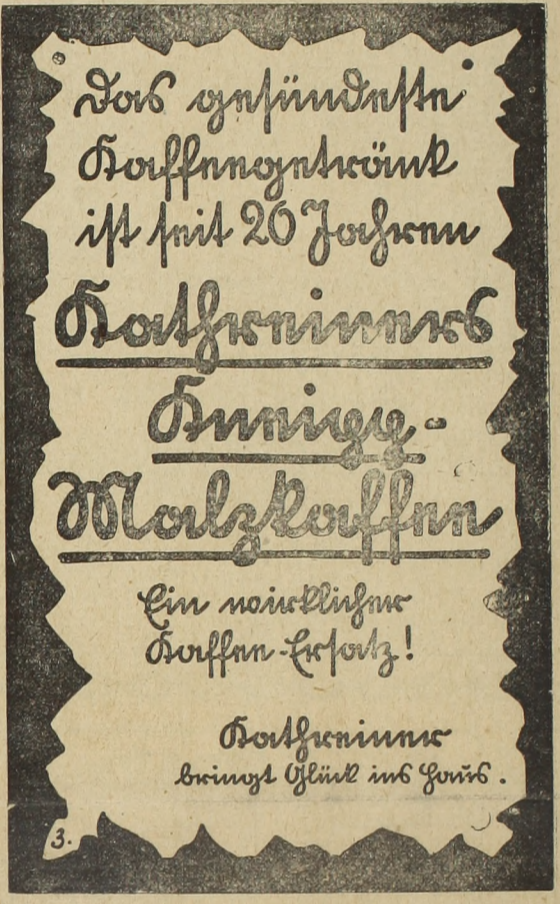 Das gesündeste
Kaffeegetränk
ist seit 20 Jahren
Kathreiners
Kneipp-
Malzkaffee
Ein wirklicher
Kaffee-Ersatz!
Kathreiner
bringt Glück ins Haus.
3.